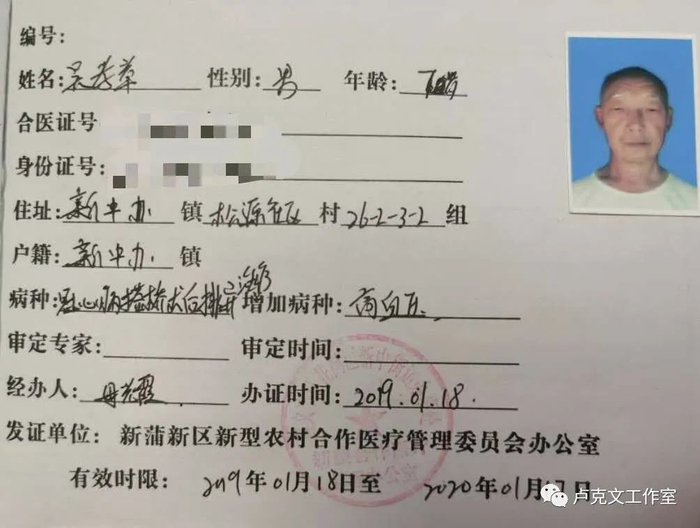 编号:
姓名: 吴孝草 性别: 男 年龄:
合医证号
身份证号:
住址: 新中办 镇 松源社区 村 26-2-3-2 组
户籍: 新中办 镇
病种: 冠心病搭桥术后抗排异治疗 增加病种: 高血压
审定专家: 审定时间:
经办人: 办证时间: 2019.01.18.
发证单位: 新蒲新区新型农村合作医疗管理委员会办公室
有效时限: 2019年01月18日至 2020年01月17日
卢克文工作室